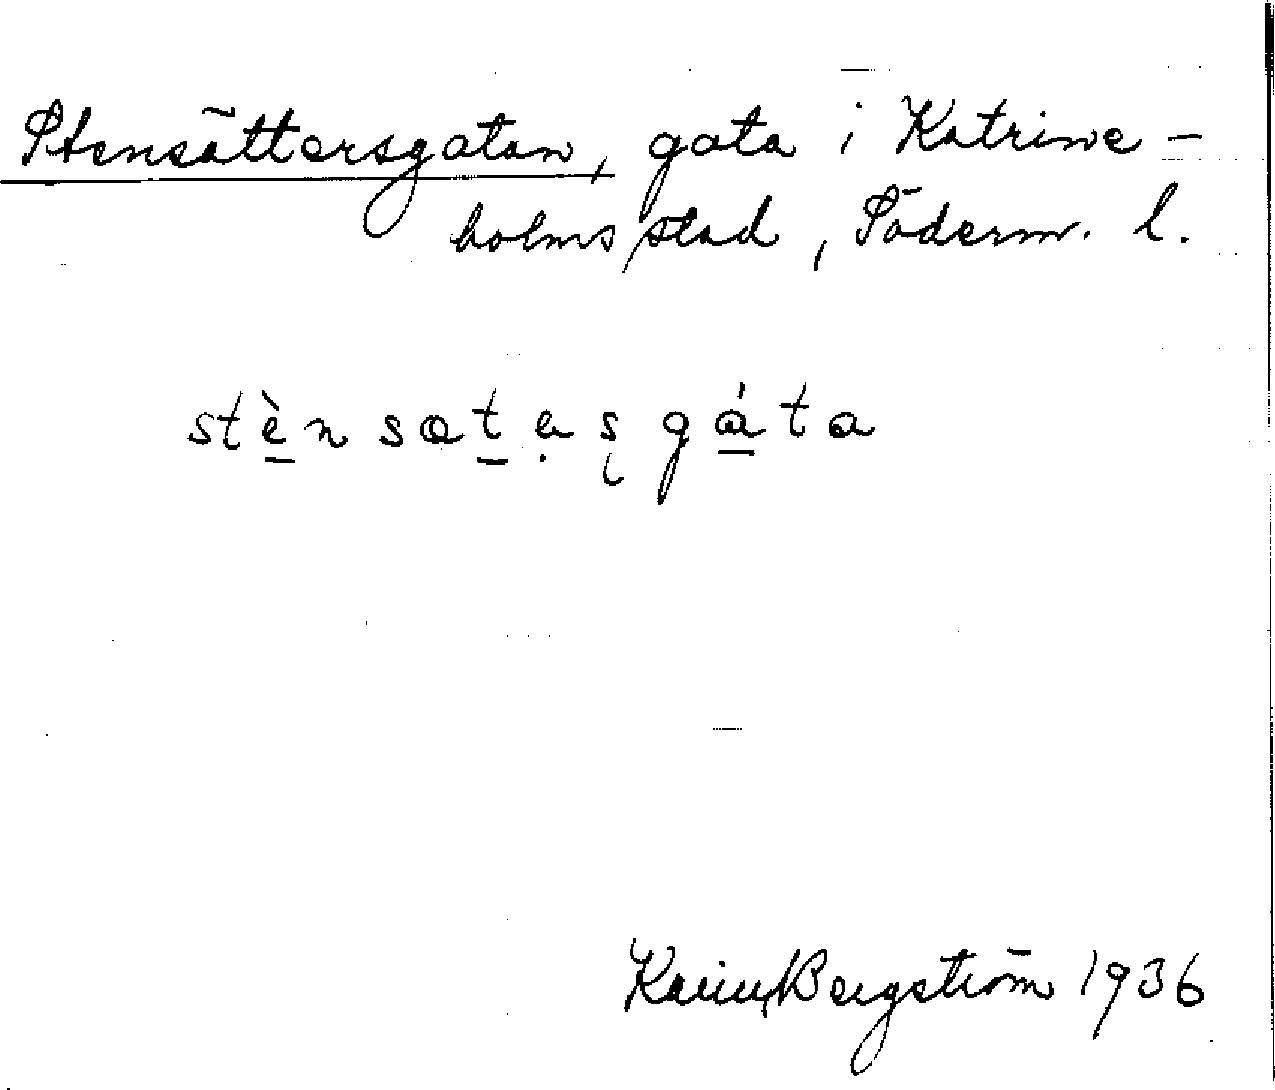 Stensättersgatan, gata i Katrine-
holms stad, Söderm. l.
stènsatạs̨gáta
Karin Bergström 1936